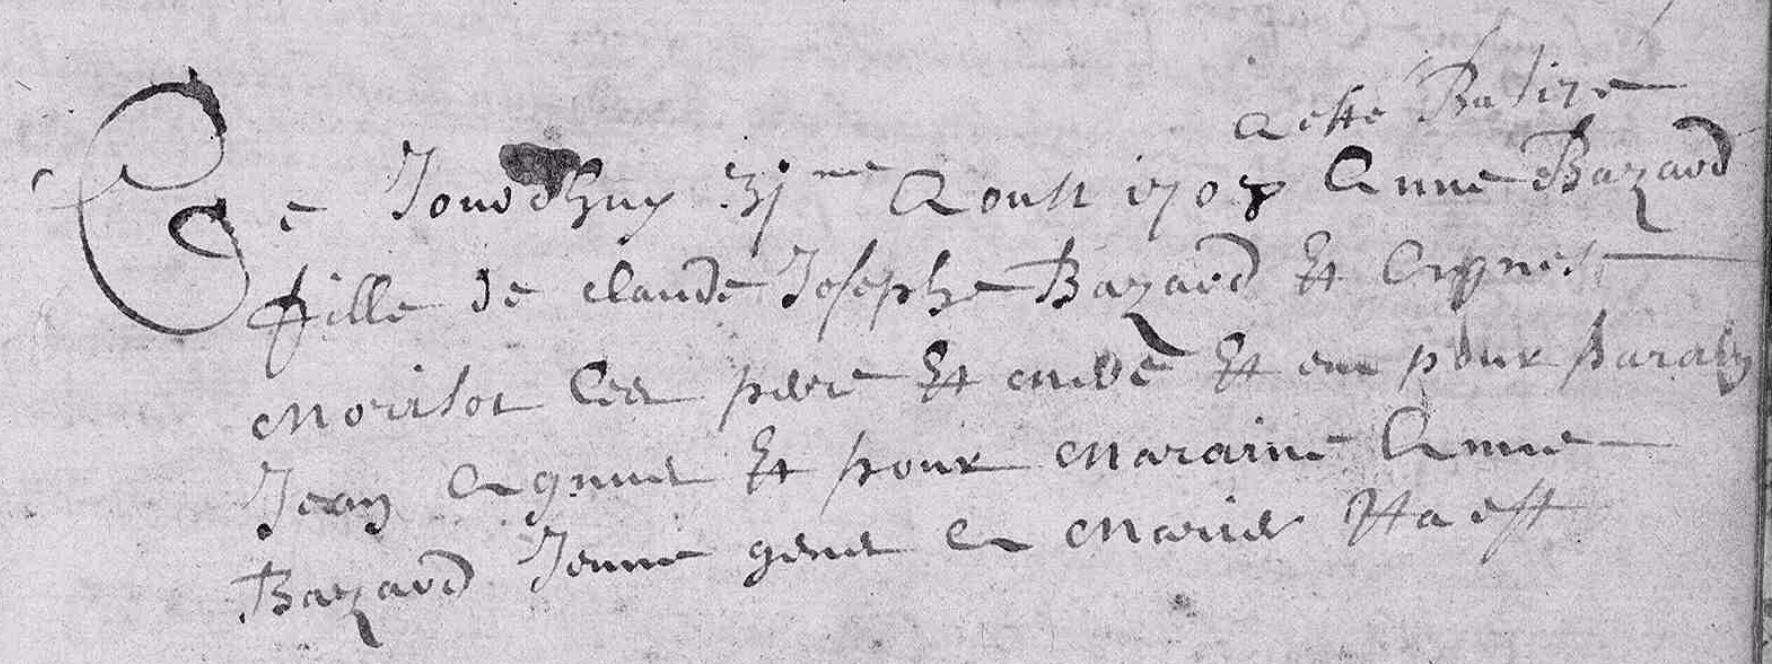 a este Batize
Ce Jourdhuy 31me Aoust 1708 Anne Bazard
fille de claude Josephe Bazard Et Agnes
Morisot Ces pere Et mere Et eu pour parain
Jean Agnus Et pour Maraine Anne
Bazard Jeune gens a Marier